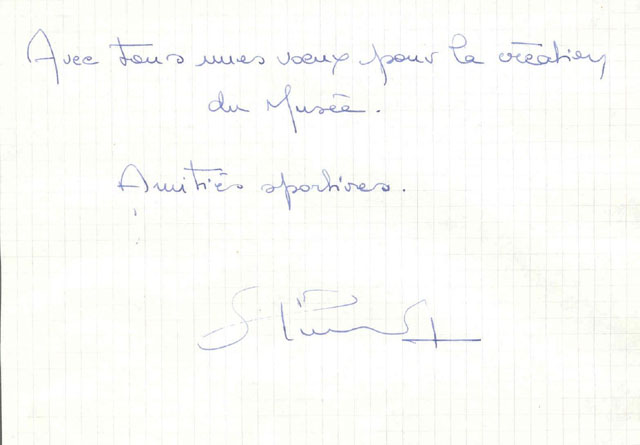 Avec tous mes vœux pour la création
du Musée.
Amitiés sportives.